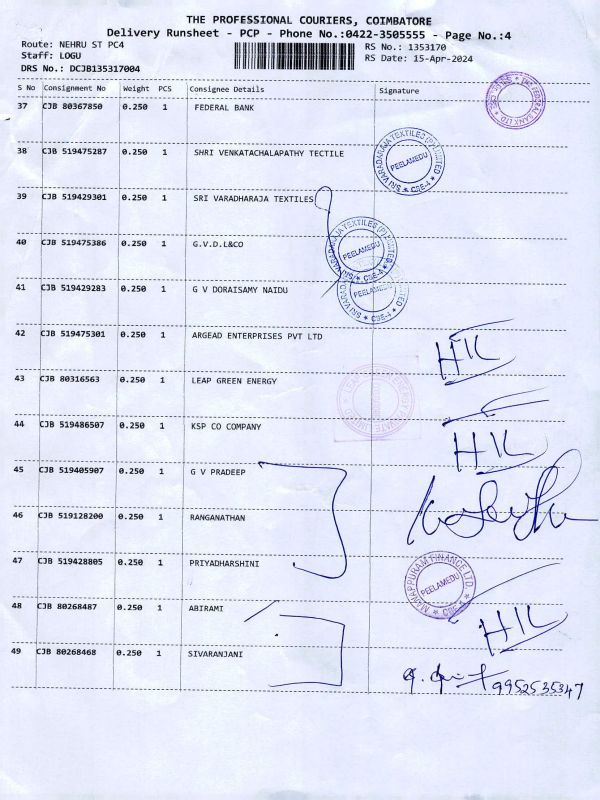 THE PROFESSIONAL COURIERS, COIMBATORE
Delivery Runsheet - PCP - Phone No.:0422-3505555 - Page No.:4
Route: NEHRU ST PC4
RS No.: 1353170
Staff: LOGU
RS Date: 15-Apr-2024
DRS No.: DCJB135317004
S No Consignment No Weight PCS Consignee Details Signature
37 CJB 80367850 0.250 1 FEDERAL BANK
38 CJB 519475287 0.250 1 SHRI VENKATACHALAPATHY TECTILE
SRI VARADARAJA TEXTILES (P) LIMITED
PEELAMEDU
CBE-4
39 CJB 519429301 0.250 1 SRI VARADHARAJA TEXTILES
40 CJB 519475386 0.250 1 G.V.D.L&CO
SRI VARADARAJA TEXTILES (P) LIMITED
PEELAMEDU
CBE-4
41 CJB 519429283 0.250 1 G V DORAISAMY NAIDU
PEELAMEDU
CBE-4
42 CJB 519475301 0.250 1 ARGEAD ENTERPRISES PVT LTD
43 CJB 80316563 0.250 1 LEAP GREEN ENERGY
44 CJB 519486507 0.250 1 KSP CO COMPANY
45 CJB 519405907 0.250 1 G V PRADEEP
46 CJB 519128200 0.250 1 RANGANATHAN
47 CJB 519428805 0.250 1 PRIYADHARSHINI
MANAPPURAM FINANCE LTD.
PEELAMEDU
CBE-4
48 CJB 80268487 0.250 1 ABIRAMI
49 CJB 80268468 0.250 1 SIVARANJANI
9952535347